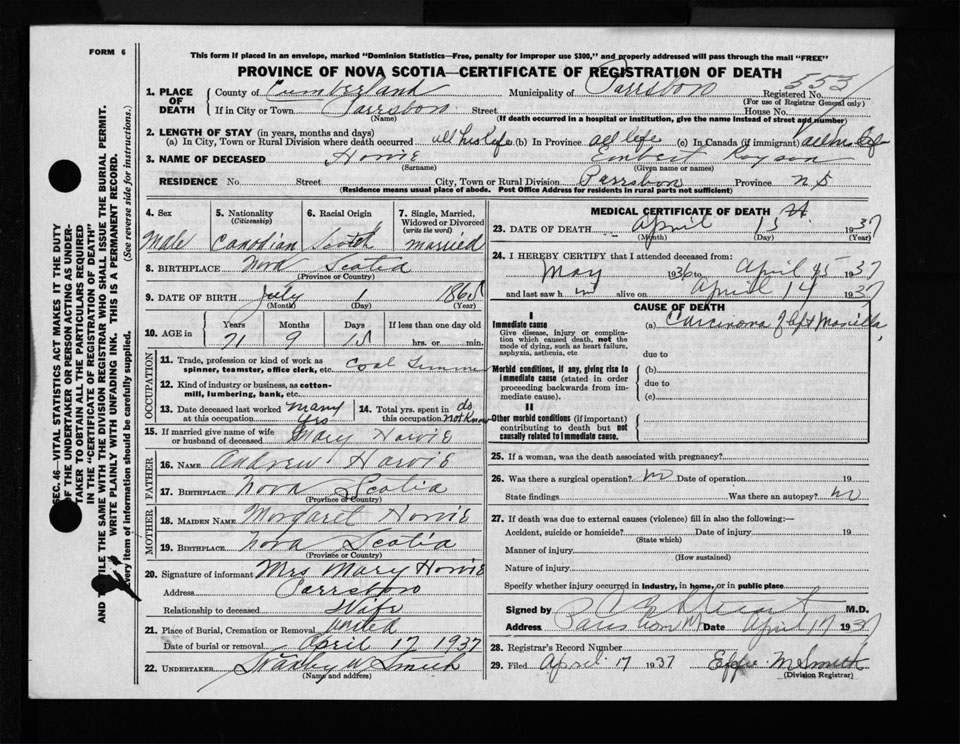 FORM 6
This form if placed in an envelope, marked "Dominion Statistics—Free, penalty for improper use $300," and properly addressed will pass through the mail "FREE"
PROVINCE OF NOVA SCOTIA—CERTIFICATE OF REGISTRATION OF DEATH
553
1. PLACE OF DEATH
County of Cumberland Municipality of Parrsboro Registered No.
(For use of Registrar General only)
If in City or Town Parrsboro Street House No.
(Name) (If death occurred in a hospital or institution, give the name instead of street and number)
2. LENGTH OF STAY (in years, months and days)
(a) In City, Town or Rural Division where death occurred all his life (b) In Province all life (c) In Canada (if immigrant) all his life
3. NAME OF DECEASED Howie
(Surname) (Given name or names)
RESIDENCE No. Street City, Town or Rural Division Parrsboro Province N S
(Residence means usual place of abode. Post Office Address for residents in rural parts not sufficient)
4. Sex
Male
5. Nationality
(Citizenship)
Canadian
6. Racial Origin
Scotch
7. Single, Married, Widowed or Divorced
(write the word)
married
8. BIRTHPLACE Nova Scotia
(Province or Country)
9. DATE OF BIRTH July 1 1865
(Month) (Day) (Year)
10. AGE in
Years Months Days If less than one day old
71 9 15 hrs. or min.
OCCUPATION
11. Trade, profession or kind of work as spinner, teamster, office clerk, etc. Coal
12. Kind of industry or business, as cotton-mill, lumbering, bank, etc.
13. Date deceased last worked at this occupation many yrs
14. Total yrs. spent in this occupation do not know
15. If married give name of wife or husband of deceased Mary Howie
FATHER
16. NAME Andrew Howie
17. BIRTHPLACE Nova Scotia
(Province or Country)
MOTHER
18. MAIDEN NAME Margaret Howie
19. BIRTHPLACE Nova Scotia
(Province or Country)
20. Signature of informant Mrs Mary Howie
Address Parrsboro
Relationship to deceased Wife
21. Place of Burial, Cremation or Removal United
Date of burial or removal April 17 1937
22. UNDERTAKER Stanley W Smith
(Name and address)
MEDICAL CERTIFICATE OF DEATH
23. DATE OF DEATH April 15 1937
(Month) (Day) (Year)
24. I HEREBY CERTIFY that I attended deceased from:
May 1936 to April 15 1937
and last saw h m alive on April 14 1937
CAUSE OF DEATH
I
Immediate cause
Give disease, injury or complication which caused death, not the mode of dying, such as heart failure, asphyxia, asthenia, etc
(a) Carcinoma of left Maxilla
due to
Morbid conditions, if any, giving rise to immediate cause (stated in order proceeding backwards from immediate cause).
(b)
due to
(c)
II
Other morbid conditions (if important) contributing to death but not causally related to immediate cause.
25. If a woman, was the death associated with pregnancy?
26. Was there a surgical operation? no Date of operation 19
State findings Was there an autopsy? no
27. If death was due to external causes (violence) fill in also the following:—
Accident, suicide or homicide? Date of injury 19
(State which)
Manner of injury
(How sustained)
Nature of injury
Specify whether injury occurred in industry, in home, or in public place
Signed by M.D.
Address Parrsboro Date April 17 1937
28. Registrar's Record Number
29. Filed April 17 1937 Effie M Smith
(Division Registrar)
SEC. 46—VITAL STATISTICS ACT MAKES IT THE DUTY
OF THE UNDERTAKER OR PERSON ACTING AS UNDER-
TAKER TO OBTAIN ALL THE PARTICULARS REQUIRED
IN THE "CERTIFICATE OF REGISTRATION OF DEATH"
AND TO FILE THE SAME WITH THE DIVISION REGISTRAR WHO SHALL ISSUE THE BURIAL PERMIT.
WRITE PLAINLY WITH UNFADING INK. THIS IS A PERMANENT RECORD.
Every item of information should be carefully supplied. (See reverse side for instructions.)